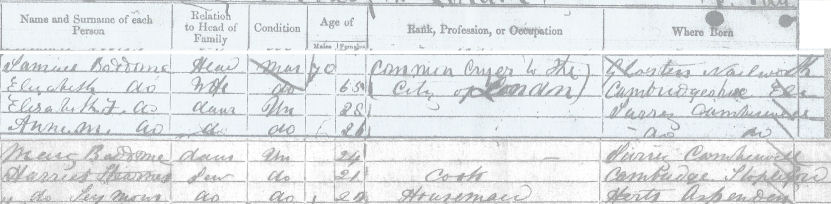 Name and Surname of each Person | Relation to Head of Family | Condition | Age of Males Females | Rank, Profession, or Occupation | Where Born
Samuel Beddome | Head | Mar | 70 | Common Cryer to the | Glosters Nailworth
Elizabeth do | Wife | do | 65 | City of London | Cambridgeshire Ely
Elizabeth F. do | daur | Un | 28 | Surrey Camberwell
Anne M. do | do | do | 26 | do do
Mary Beddome | daur | Un | 24 | Surrey Camberwell
Harriet | Ser | do | 21 | Cook | Cambridge
do Seymour | do | do | 20 | Housemaid | Herts Aspenden